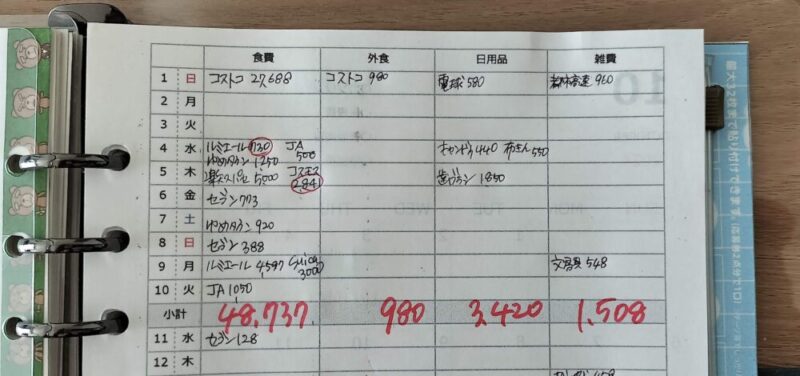 食費 外食 日用品 雑費
1 日 コストコ 27,688 コストコ 980 電球 580 960
2 月
3 火
4 水 ルミエール 730 JA 500 キャンドゥ 440 550
ゆめタウン 1250
5 木 5,000 コスモス 2841 歯ブラシ 1850
6 金 セブン 773
7 土 ゆめタウン 920
8 日 セブン 388
9 月 ルミエール 4597 3000 文房具 548
10 火 JA 1050
小計 48,737 980 3,420 1,508
11 水 セブン 128
12 木